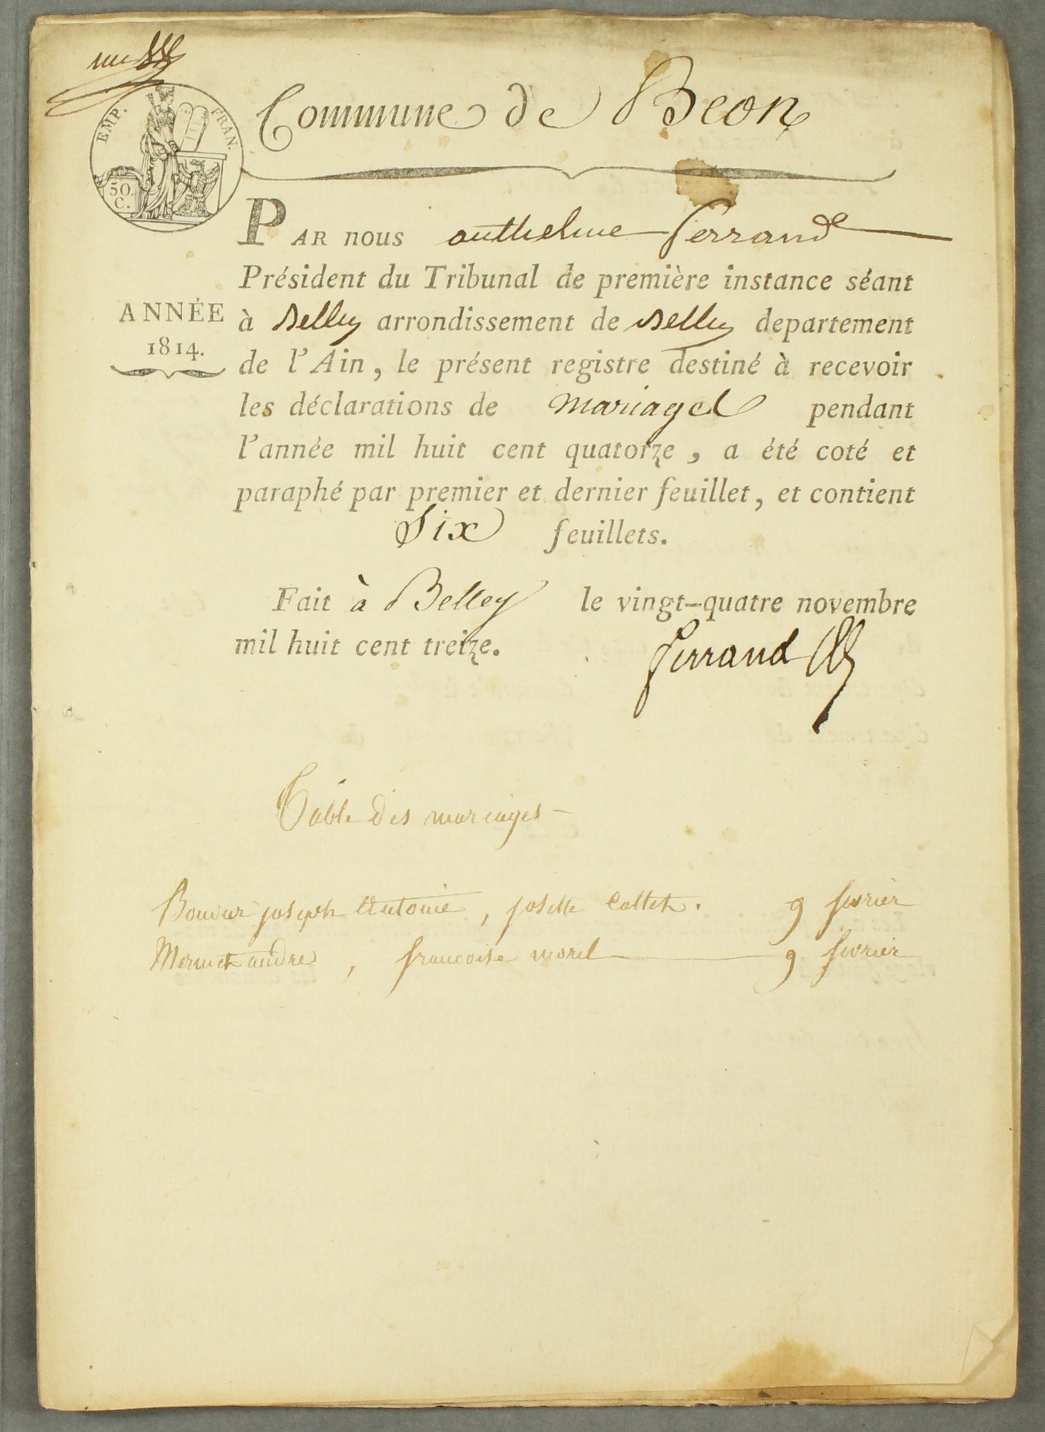 Commune de Beon
EMP. FRAN.
50.
C.
PAR nous anthelme Ferrand
Président du Tribunal de première instance séant
à Belley arrondissement de Belley departement
ANNÉE
1814.
de l'Ain, le présent registre destiné à recevoir
les déclarations de mariages pendant
l'année mil huit cent quatorze, a été coté et
paraphé par premier et dernier feuillet, et contient
Six feuillets.
Fait à Belley le vingt-quatre novembre
mil huit cent treize.
ferrand
Table des mariages
joseph Antoine, josette Collet. 9 fevrier
Mermet andre, francoise morel 9 fevrier